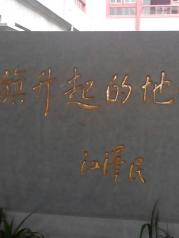 旗升起的地
江泽民